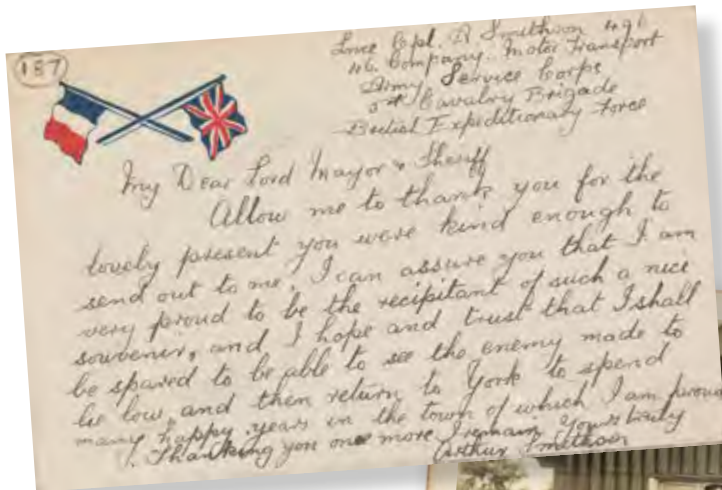 187
Lnce Cpl. A Smithson 496
46 Company. Motor Transport
Army Service Corps
3rd Cavalry Brigade
British Expeditionary Force
My Dear Lord Mayor & Sheriff
Allow me to thank you for the
lovely present you were kind enough to
send out to me, I can assure you that I am
very proud to be the recipitant of such a nice
souvenir, and I hope and trust that I shall
be spared to be able to see the enemy made to
lie low, and then return to York to spend
many happy years in the town of which I am proud
Thanking you one more I remain Yours truly
Arthur Smithson